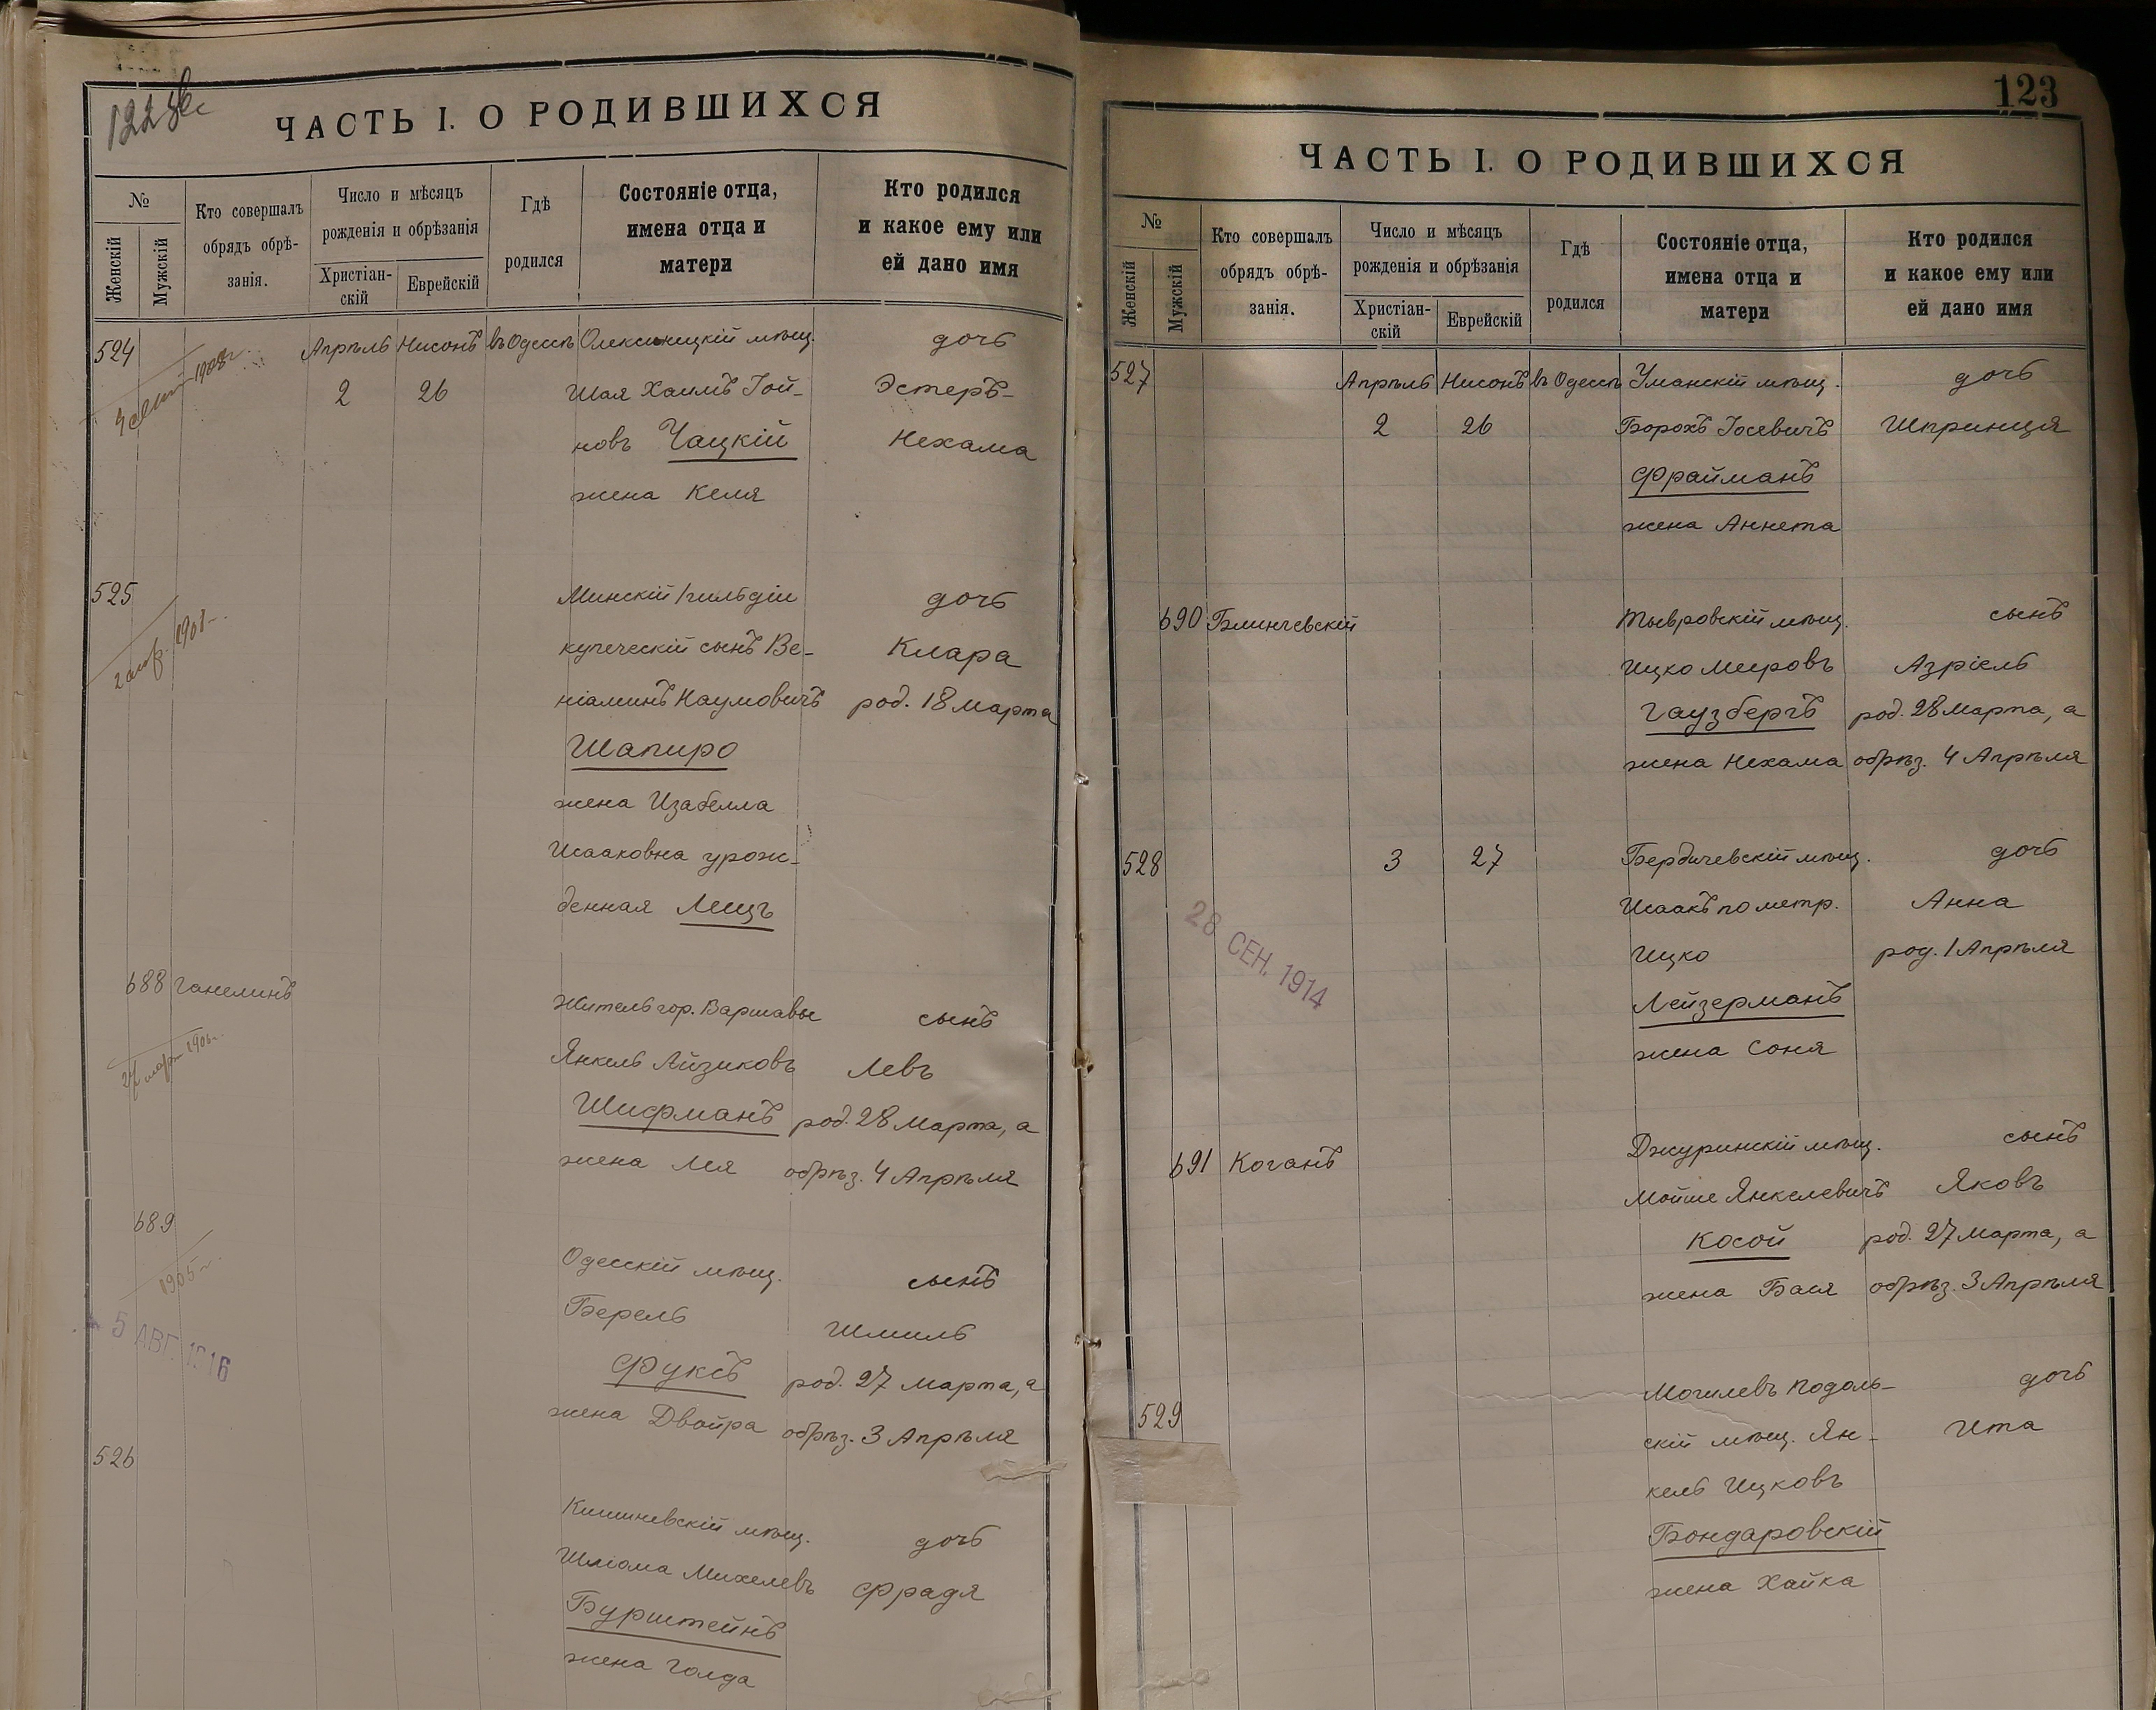 122
ЧАСТЬ I. О РОДИВШИХСЯ
№
Женскій
Мужскій
Кто совершалъ
обрядъ обрѣ-
занія.
Число и мѣсяцъ
рожденія и обрѣзанія
Христіан-
скій
Еврейскій
Гдѣ
родился
Состояніе отца,
имена отца и
матери
Кто родился
и какое ему или
ей дано имя
524 Апрѣль Нисонъ въ Одессѣ Олексиницкій мѣщ. дочь
1908г.
2 26 Шая Хаимъ Іой- Эстеръ-
новъ Чацкій Нехама
жена Келя
525 Минскій 1 гильдіи дочь
1908г.
купеческій сынъ Ве- Клара
ніаминъ Наумовичъ род. 18 марта
Шапиро
жена Изабелла
Исааковна урож-
денная Лещъ
688 Ганелинъ Житель гор. Варшавы сынъ
Янкель Айзиковъ Левъ
Шифманъ род. 28 марта, а
жена Лея обрѣз. 4 Апрѣля
689 Одесскій мѣщ. сынъ
1905г.
Берель Шмиль
5 АВГ. 1916
Фуксъ род. 27 марта, а
жена Двойра обрѣз. 3 Апрѣля
526 Кишиневскій мѣщ. дочь
Шліома Михелевъ Фрадя
Бурштейнъ
жена Голда
123
ЧАСТЬ I. О РОДИВШИХСЯ
№
Женскій
Мужскій
Кто совершалъ
обрядъ обрѣ-
занія.
Число и мѣсяцъ
рожденія и обрѣзанія
Христіан-
скій
Еврейскій
Гдѣ
родился
Состояніе отца,
имена отца и
матери
Кто родился
и какое ему или
ей дано имя
527 Апрѣль Нисонъ въ Одессѣ Уманскій мѣщ. дочь
2 26 Борохъ Іосевичъ Шпринця
Фрайманъ
жена Аннета
690 Блинчевскій Тывровскій мѣщ. сынъ
Ицко Меровъ Азріель
Гаузбергъ род. 28 марта, а
жена Нехама обрѣз. 4 Апрѣля
528 3 27 Бердичевскій мѣщ. дочь
Исаакъ по метр. Анна
28 СЕН. 1914
Ицко род. 1 Апрѣля
Лейзерманъ
жена Соня
691 Коганъ Джуринскій мѣщ. сынъ
Мойше Янкелевичъ Яковъ
Косой род. 27 марта, а
жена Бася обрѣз. 3 Апрѣля
529 Могилевъ Подоль- дочь
скій мѣщ. Ян- Ита
кель Ицковъ
Бондаровскій
жена Хайка